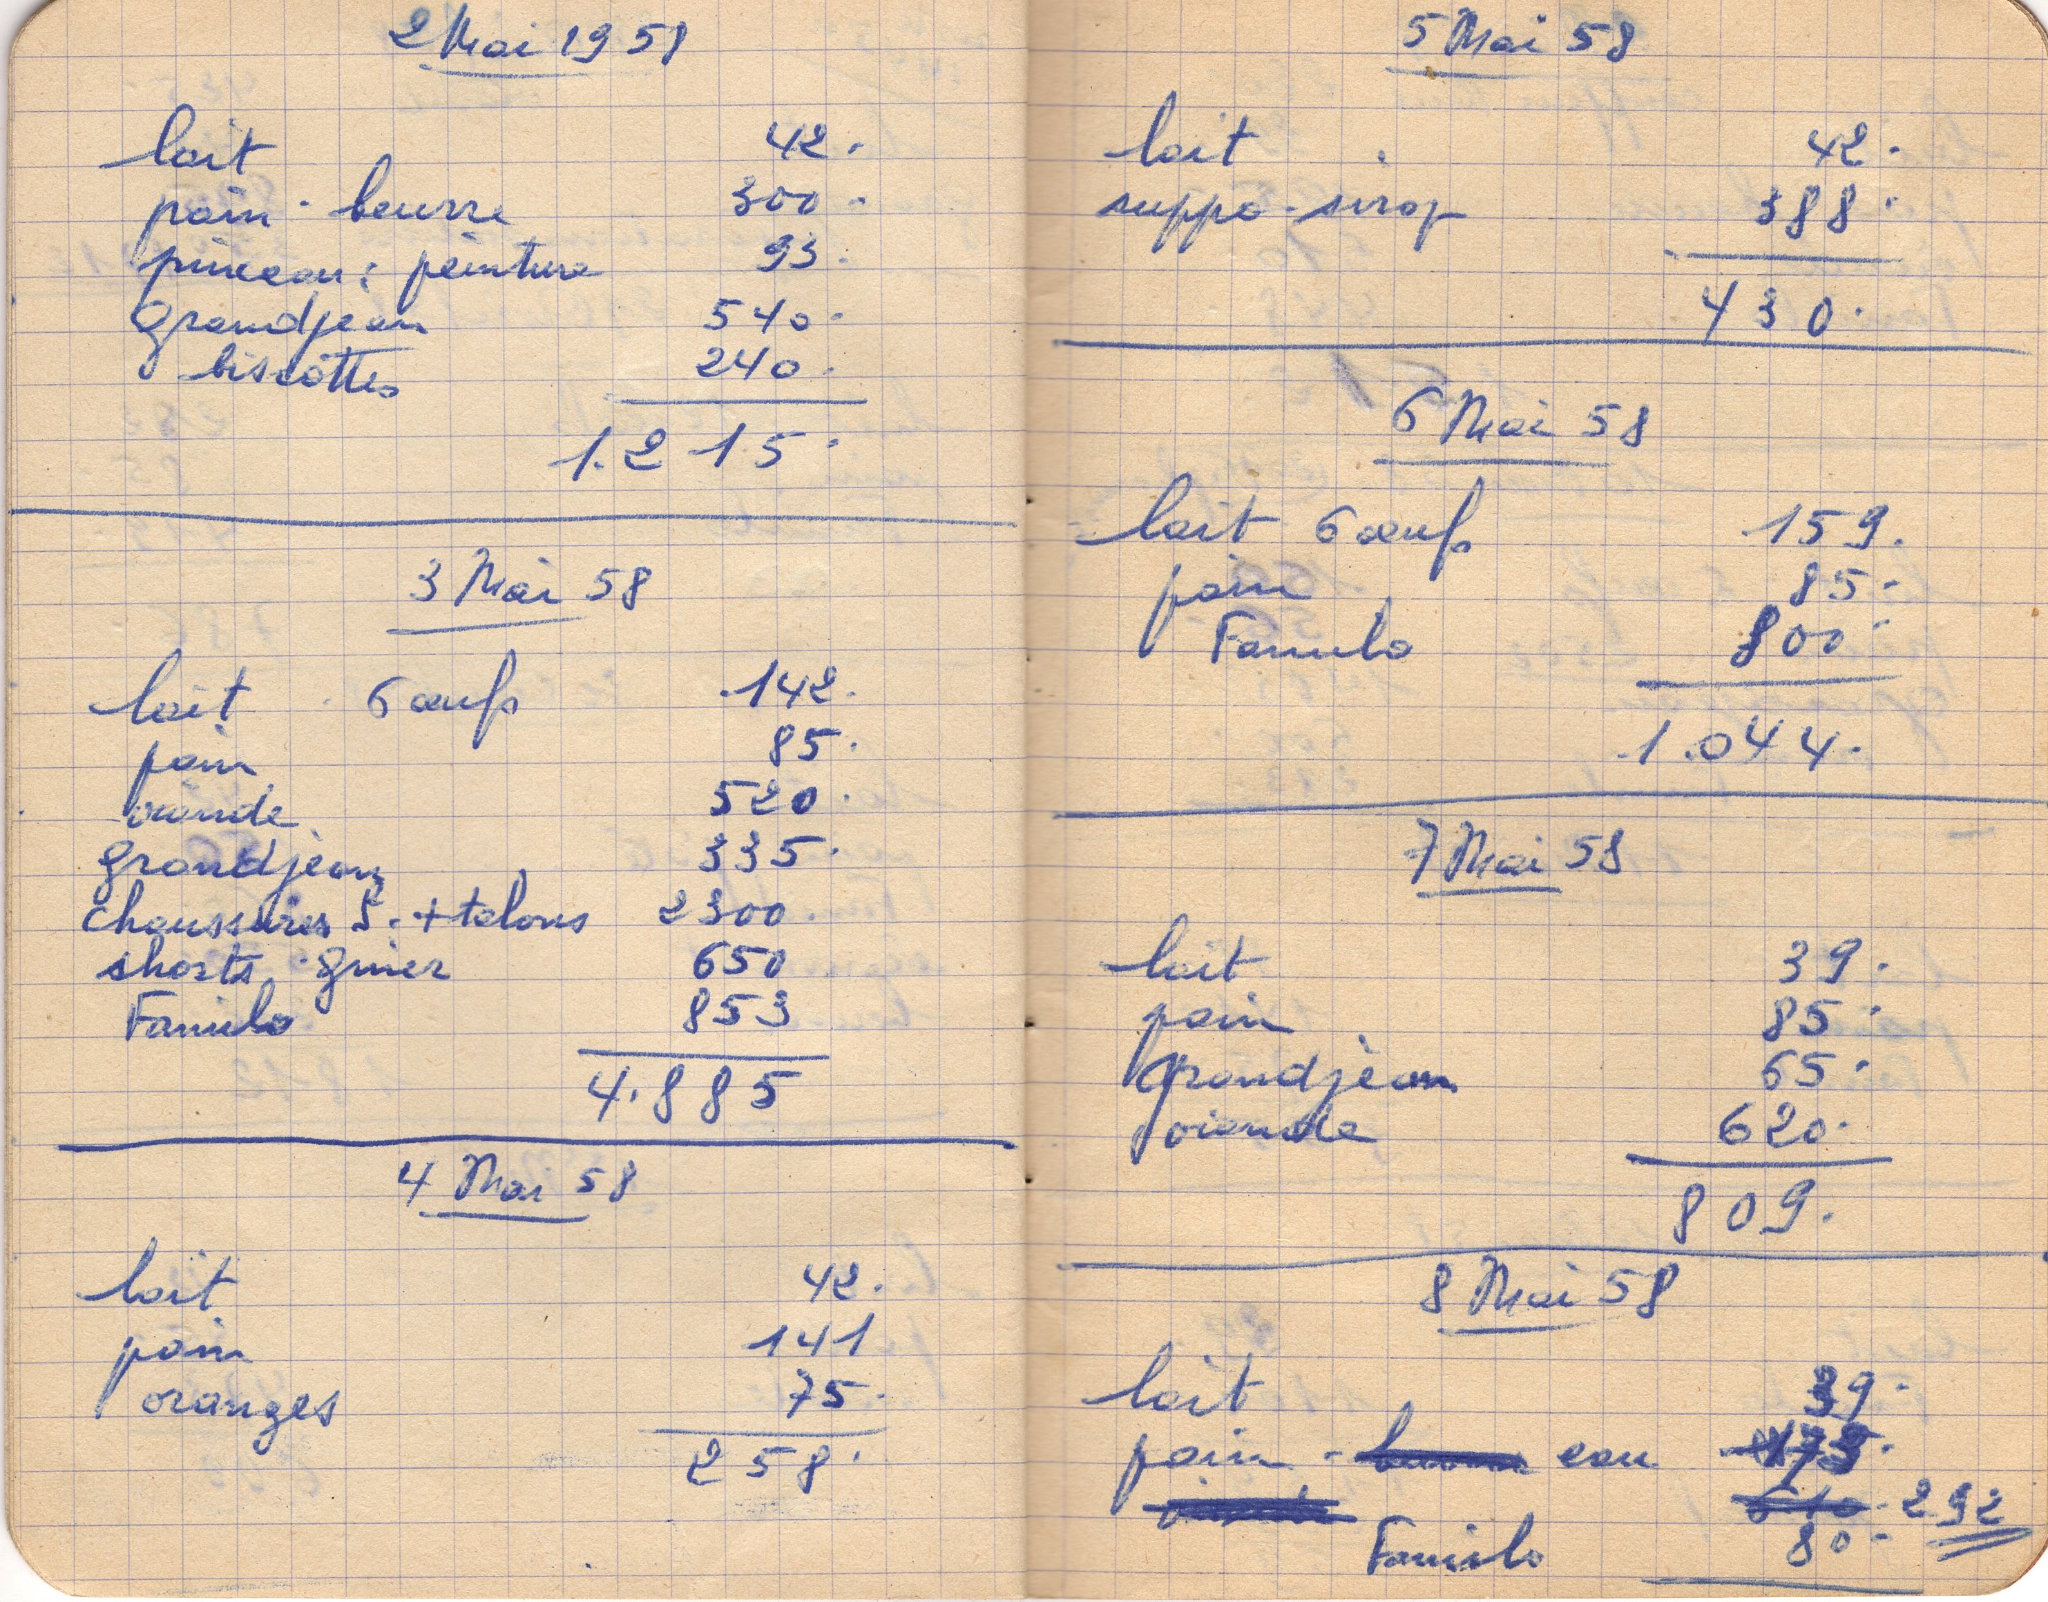 2 Mai 1958
lait 42.
pain - beurre 300.
pinceau : peinture 93.
Grandjean 540.
biscottes 240.
1.215.
3 Mai 58
lait 6 œufs 142.
pain 85.
viande 520.
Grandjean 335.
chaussures S. + talons 2300.
shorts 650
Familo 853
4.885
4 Mai 58
lait 42.
pain 141
oranges 75.
258.
5 Mai 58
lait 42.
suppo - sirop 388.
430.
6 Mai 58
lait 6 œufs 159.
pain 85.
Familo 800
1.044.
7 Mai 58
lait 39.
pain 85.
Grandjean 65.
viande 620.
809.
8 Mai 58
lait 39.
pain - eau 173.
292
Familo 80.